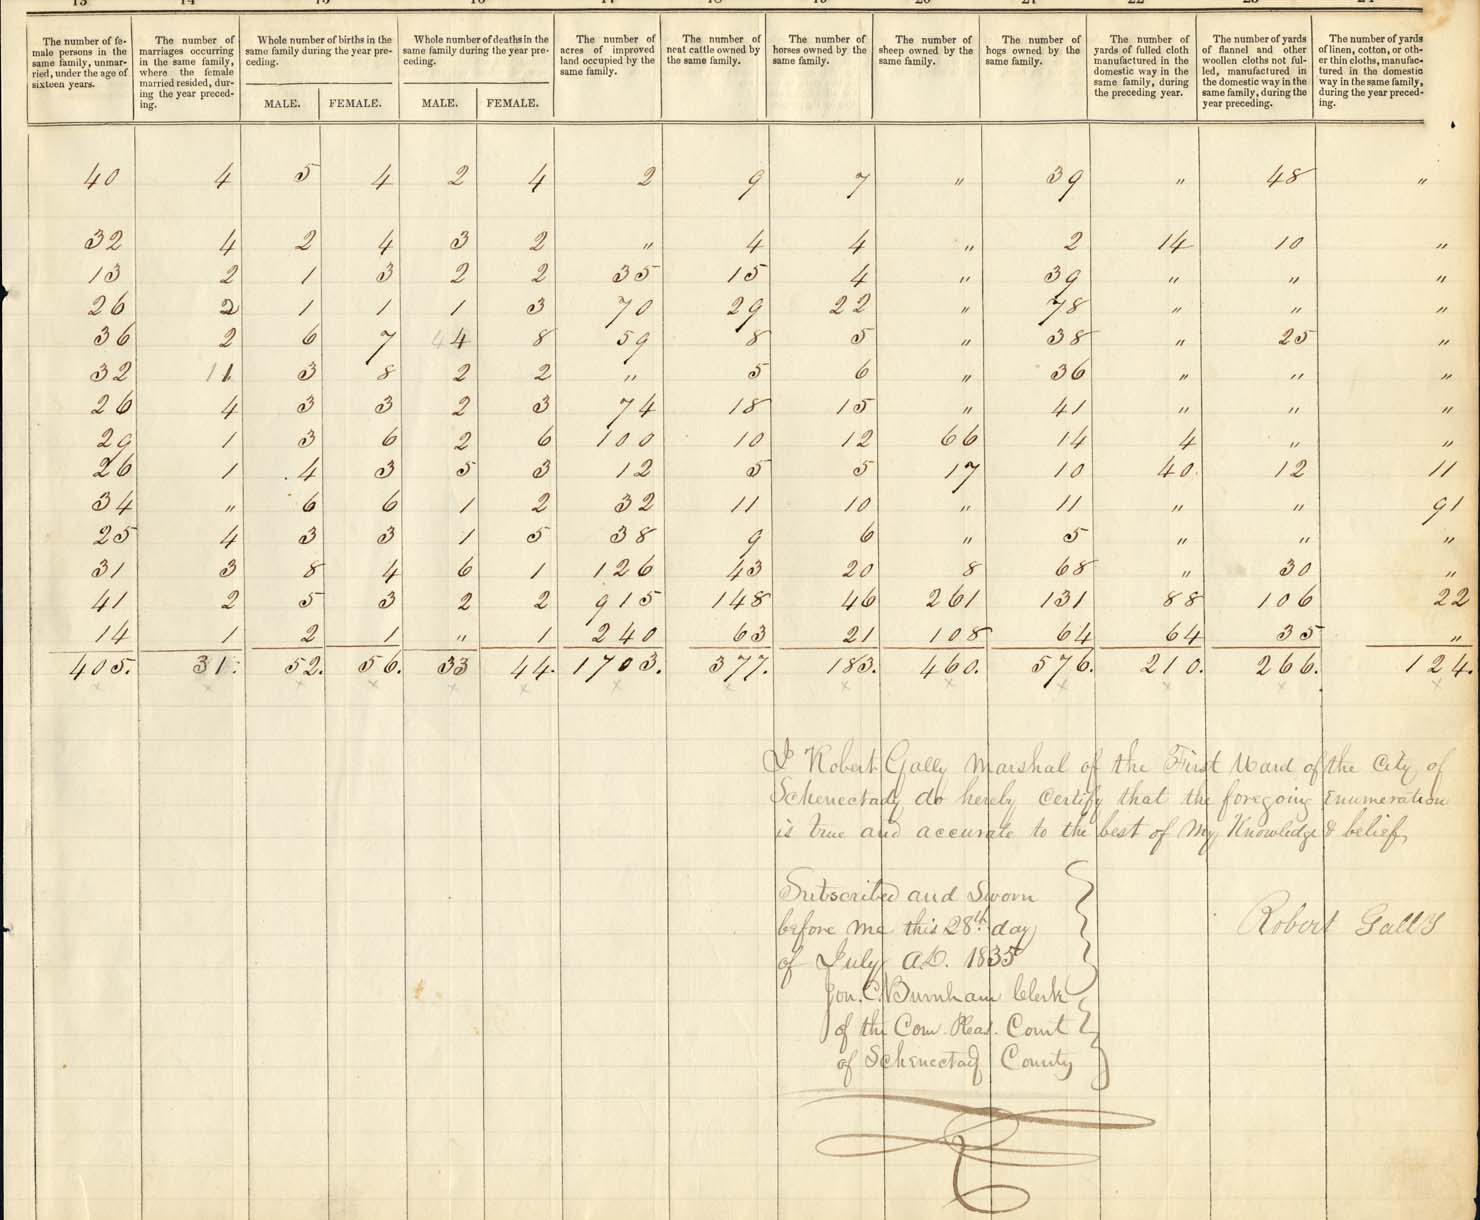 13 14 15 16 17 18 19 20 21 22 23 24
The number of fe-
male persons in the
same family, unmar-
ried, under the age of
sixteen years.
The number of
marriages occurring
in the same family,
where the female
married resided, dur-
ing the year preced-
ing.
Whole number of births in the
same family during the year pre-
ceding.
MALE. FEMALE.
Whole number of deaths in the
same family during the year pre-
ceding.
MALE. FEMALE.
The number of
acres of improved
land occupied by the
same family.
The number of
neat cattle owned by
the same family.
The number of
horses owned by the
same family.
The number of
sheep owned by the
same family.
The number of
hogs owned by the
same family.
The number of
yards of fulled cloth
manufactured in the
domestic way in the
same family, during
the preceding year.
The number of yards
of flannel and other
woollen cloths not ful-
led, manufactured in
the domestic way in the
same family, during the
year preceding.
The number of yards
of linen, cotton, or oth-
er thin cloths, manufac-
tured in the domestic
way in the same family,
during the year preced-
ing.
40 4 5 4 2 4 2 9 7 " 39 " 48 "
32 4 2 4 3 2 " 4 4 " 2 14 10 "
13 2 1 3 2 2 35 15 4 " 39 " " "
26 2 1 1 1 3 70 29 22 " 78 " " "
36 2 6 7 4 8 59 8 5 " 38 " 25 "
32 1 3 8 2 2 " 5 6 " 36 " " "
26 4 3 3 2 3 74 18 15 " 41 " " "
29 1 3 6 2 6 100 10 12 66 14 4 " "
26 1 4 3 5 3 12 5 5 17 10 40 12 11
34 " 6 6 1 2 32 11 10 " 11 " " 91
25 4 3 3 1 5 38 9 6 " 5 " " "
31 3 8 4 6 1 126 43 20 8 68 " 30 "
41 2 5 3 2 2 915 148 46 261 131 88 106 22
14 1 2 1 " 1 240 63 21 108 64 64 35 "
405. 31. 52. 56. 33 44. 1703. 377. 183. 460. 576. 210. 266. 124.
I Robert Gally Marshal of the First Ward of the City of
Schenectady do hereby certify that the foregoing Enumeration
is true and accurate to the best of My Knowledge & belief
Subscribed and Sworn
before me this 28th day
of July A.D. 1835
Jon. C. Burnham Clerk
of the Com. Pleas. Court
of Schenectady County
Robert Gally